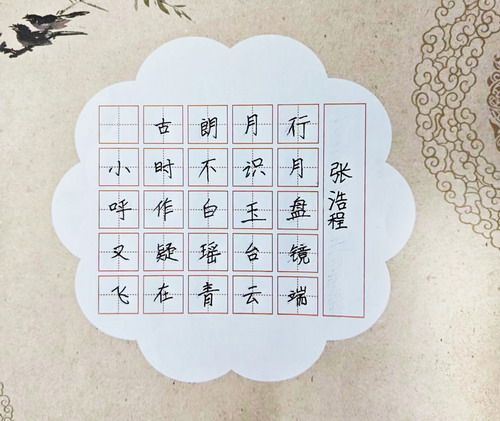 古朗月行
小时不识月
呼作白玉盘
又疑瑶台镜
飞在青云端
张浩程